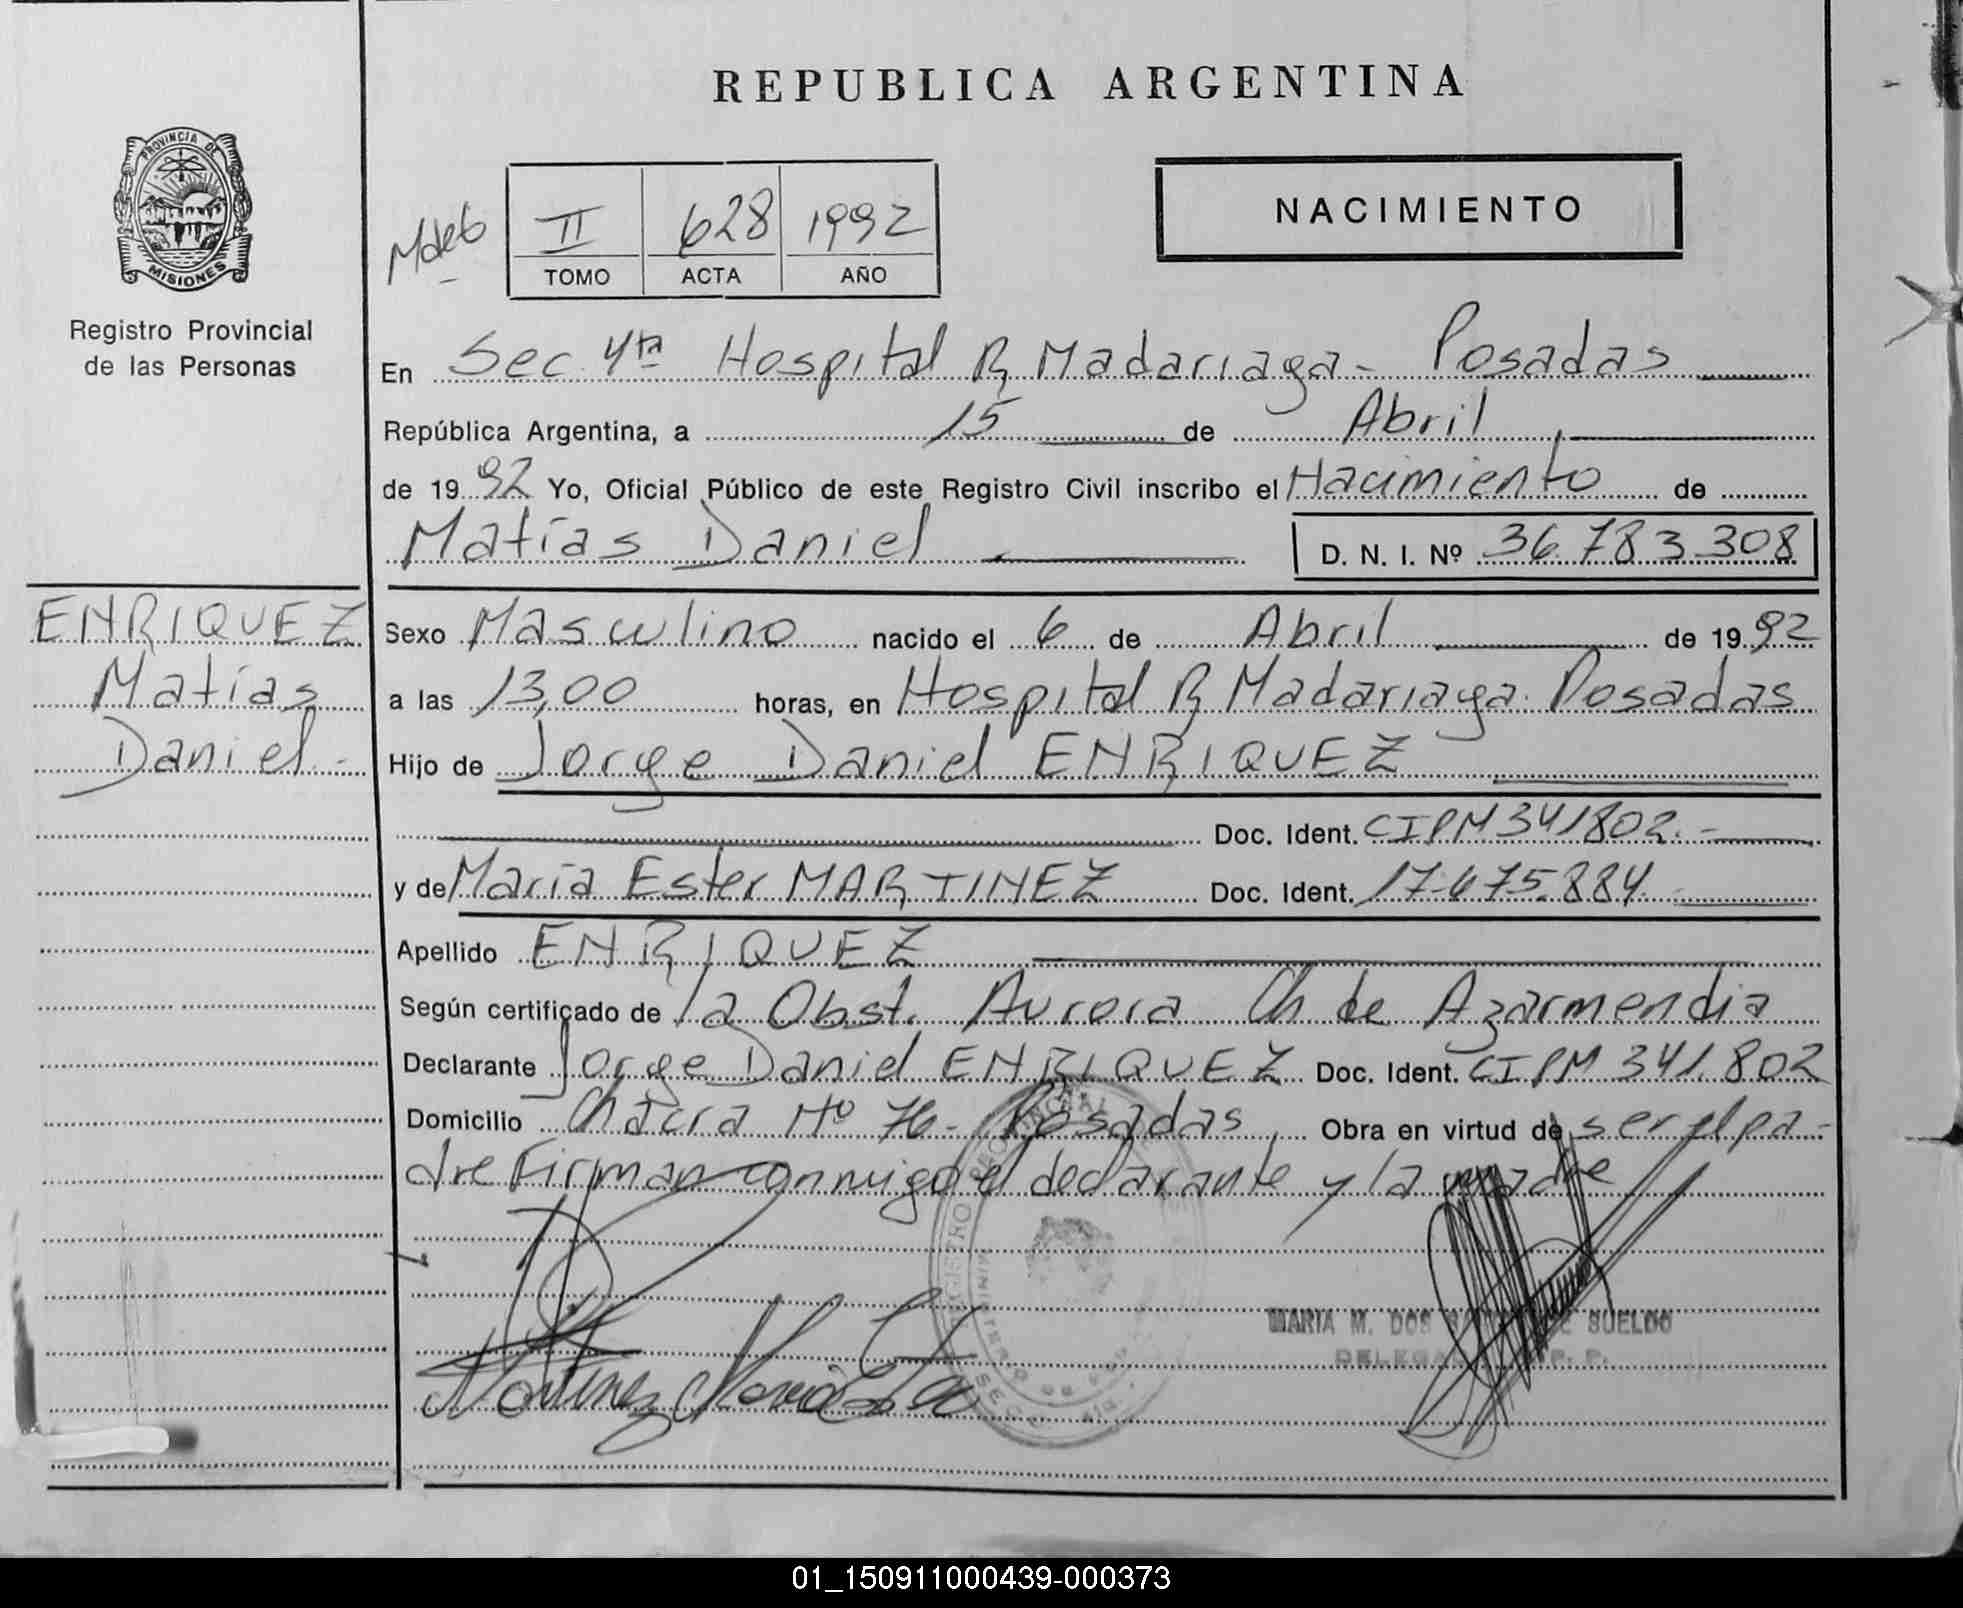 REPUBLICA ARGENTINA
PROVINCIA DE
MISIONES
Registro Provincial
de las Personas
II 628 1992
TOMO ACTA AÑO
NACIMIENTO
En Sec. 4ta Hospital R Madariaga - Posadas
República Argentina, a 15 de Abril
de 1992 Yo, Oficial Público de este Registro Civil inscribo el Nacimiento de
Matías Daniel D. N. I. Nº 36.783.308
ENRIQUEZ
Matías
Daniel.-
Sexo Masculino nacido el 6 de Abril de 1992
a las 13,00 horas, en Hospital R Madariaga. Posadas
Hijo de Jorge Daniel ENRIQUEZ
Doc. Ident. CIPM 341802.-
y de María Ester MARTINEZ Doc. Ident. 17.675.884.-
Apellido ENRIQUEZ
Según certificado de la Obst. Aurora Ch de Azarmendia
Declarante Jorge Daniel ENRIQUEZ Doc. Ident. CIPM 341.802
Domicilio Chacra Nº 76- Posadas Obra en virtud de ser el pa-
dre Firman conmigo el declarante y la madre
REGISTRO PROVINCIAL
MARIA M. DOS SUELDO
Martinez Maria Ester
01_150911000439-000373